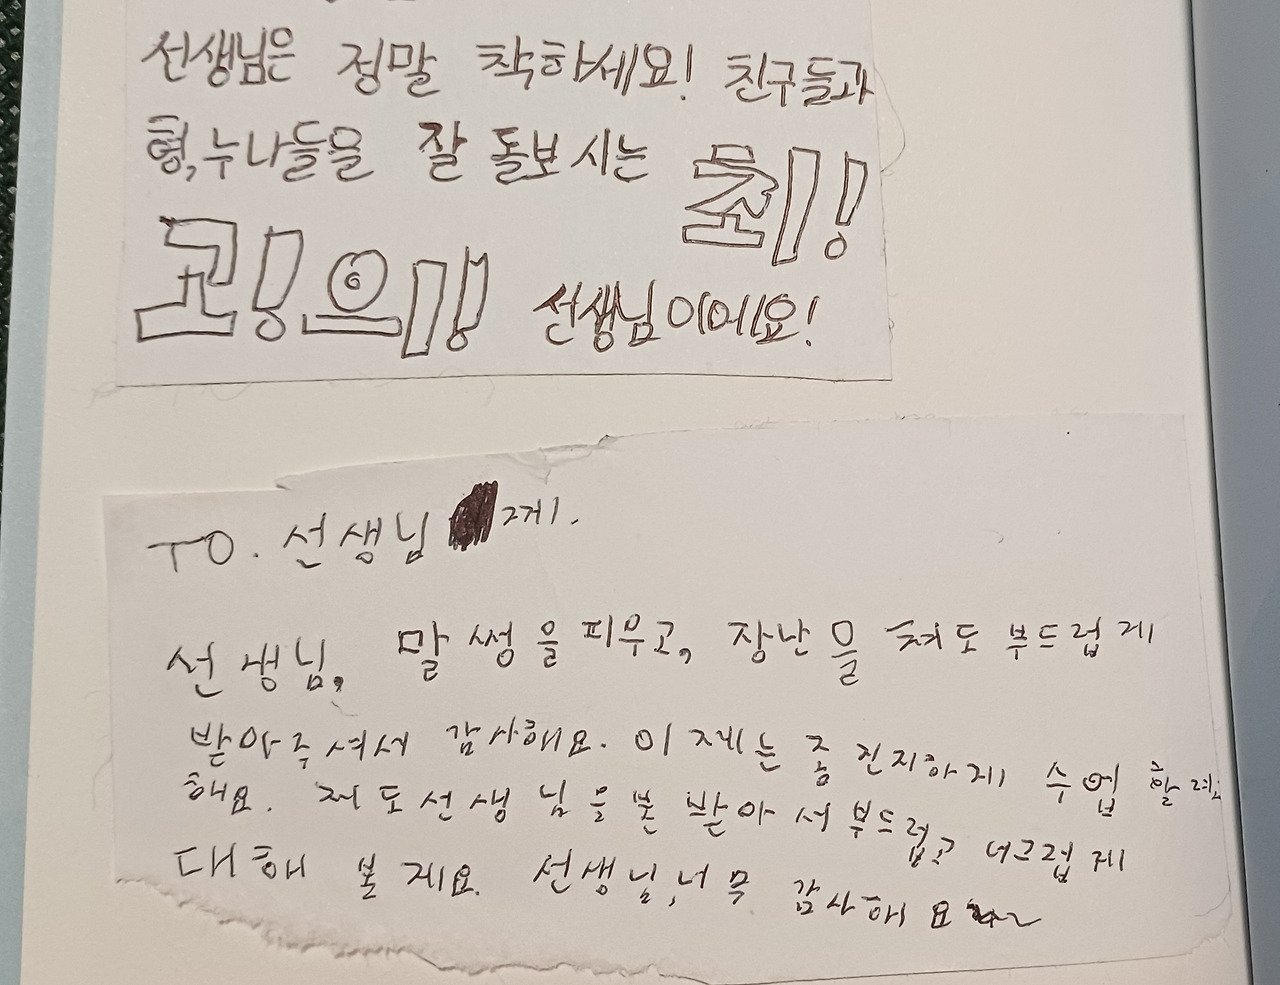 선생님은 정말 착하세요! 친구들과
형,누나들을 잘 돌보시는 최!
고!으!! 선생님이에요!
TO. 선생님 께.
선생님, 말썽을 피우고, 장난을 쳐도 부드럽게
받아주셔서 감사해요. 이제는 좀 진지하게 수업 할려고
해요. 저도선생님을 본받아서 부드럽고 너그럽게
대해 볼게요. 선생님,너무 감사해요~